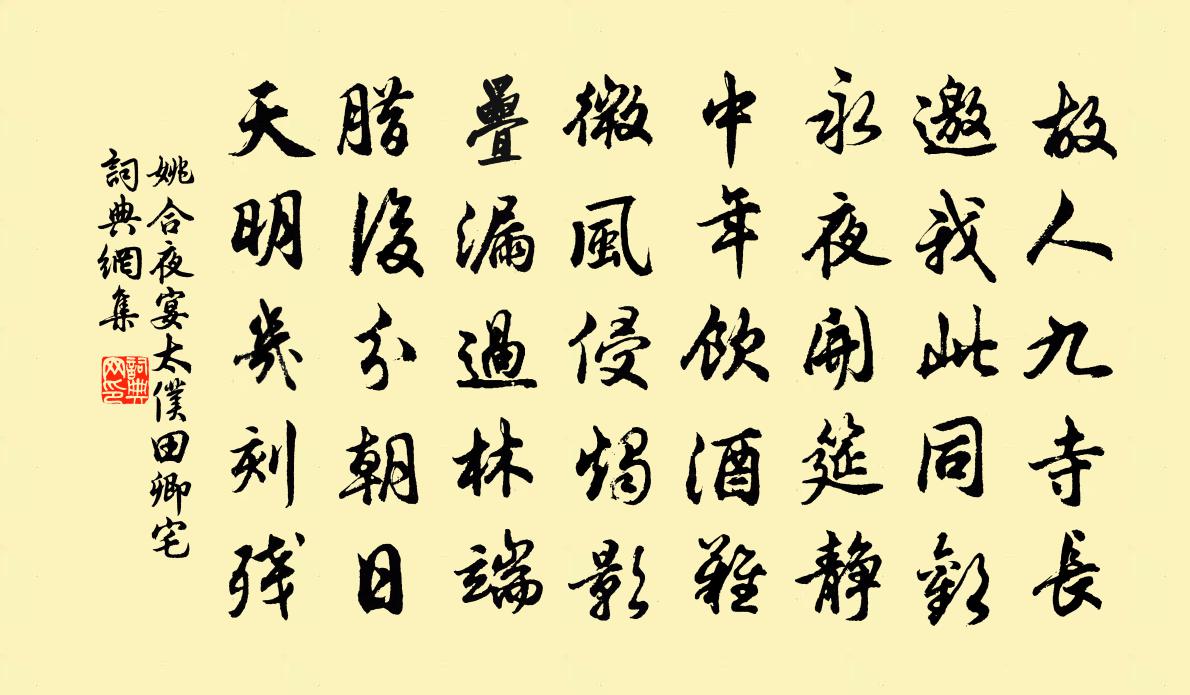 故人九寺長
邀我此同歡
永夜開筵靜
中年飲酒難
微風侵燭影
疊漏過林端
腊後分朝日
天明幾刻殘
姚合夜宴太僕田卿宅
詞典網集
詞典网印